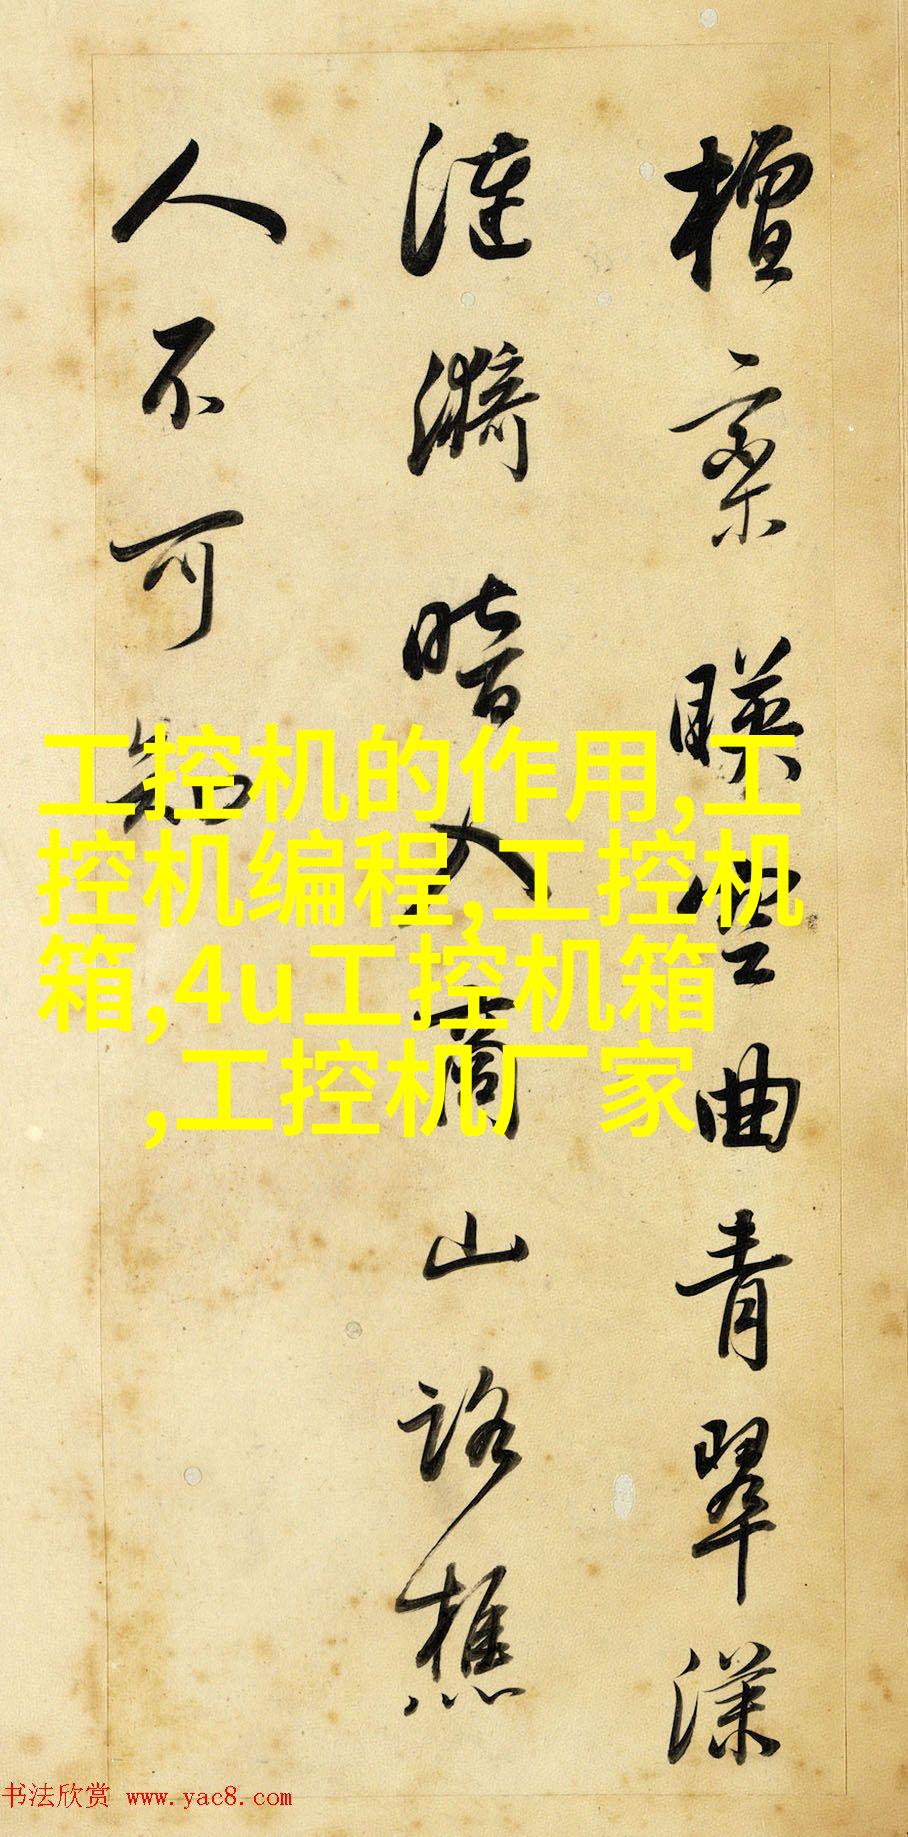 檀栾映空曲青翠漾
涟漪暗入商山路樵
人不可知
工控机的作用,工
控机编程,工控机
箱,4u工控机箱
,工控机厂家
书法欣赏 www.yac8.com